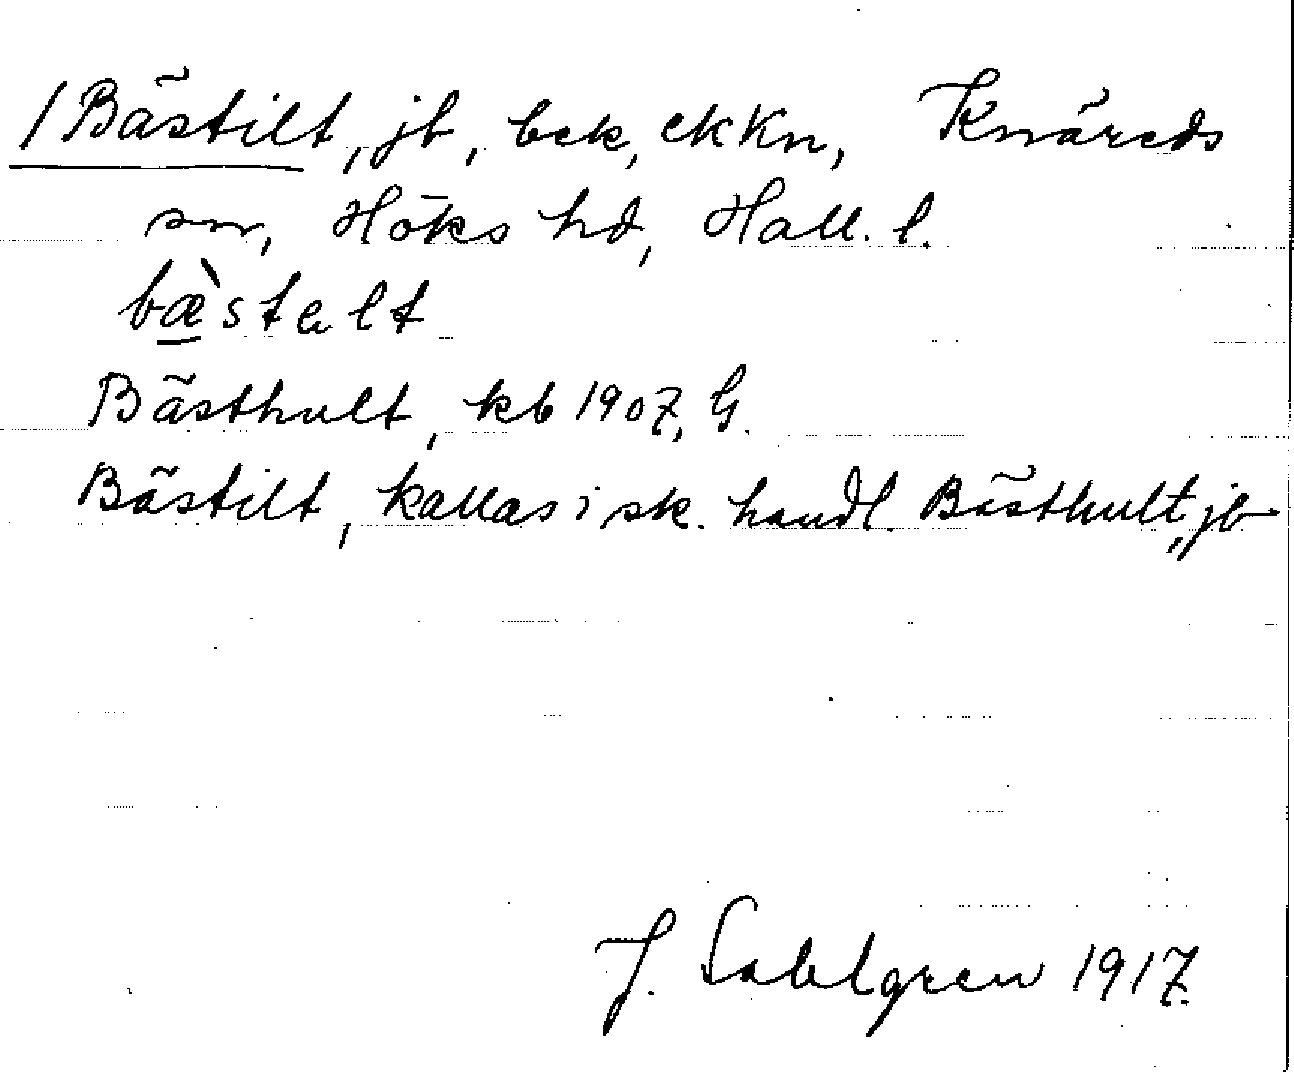 /Bästilt, jb, bek, ekKn, Knäreds
sn, Höks hd, Hall. l.
bæ̀stalt
Bästhult, kb 1907, G.
Bästilt, kallas i sk. handl. Bästhult, jb
J. Sahlgren 1917.